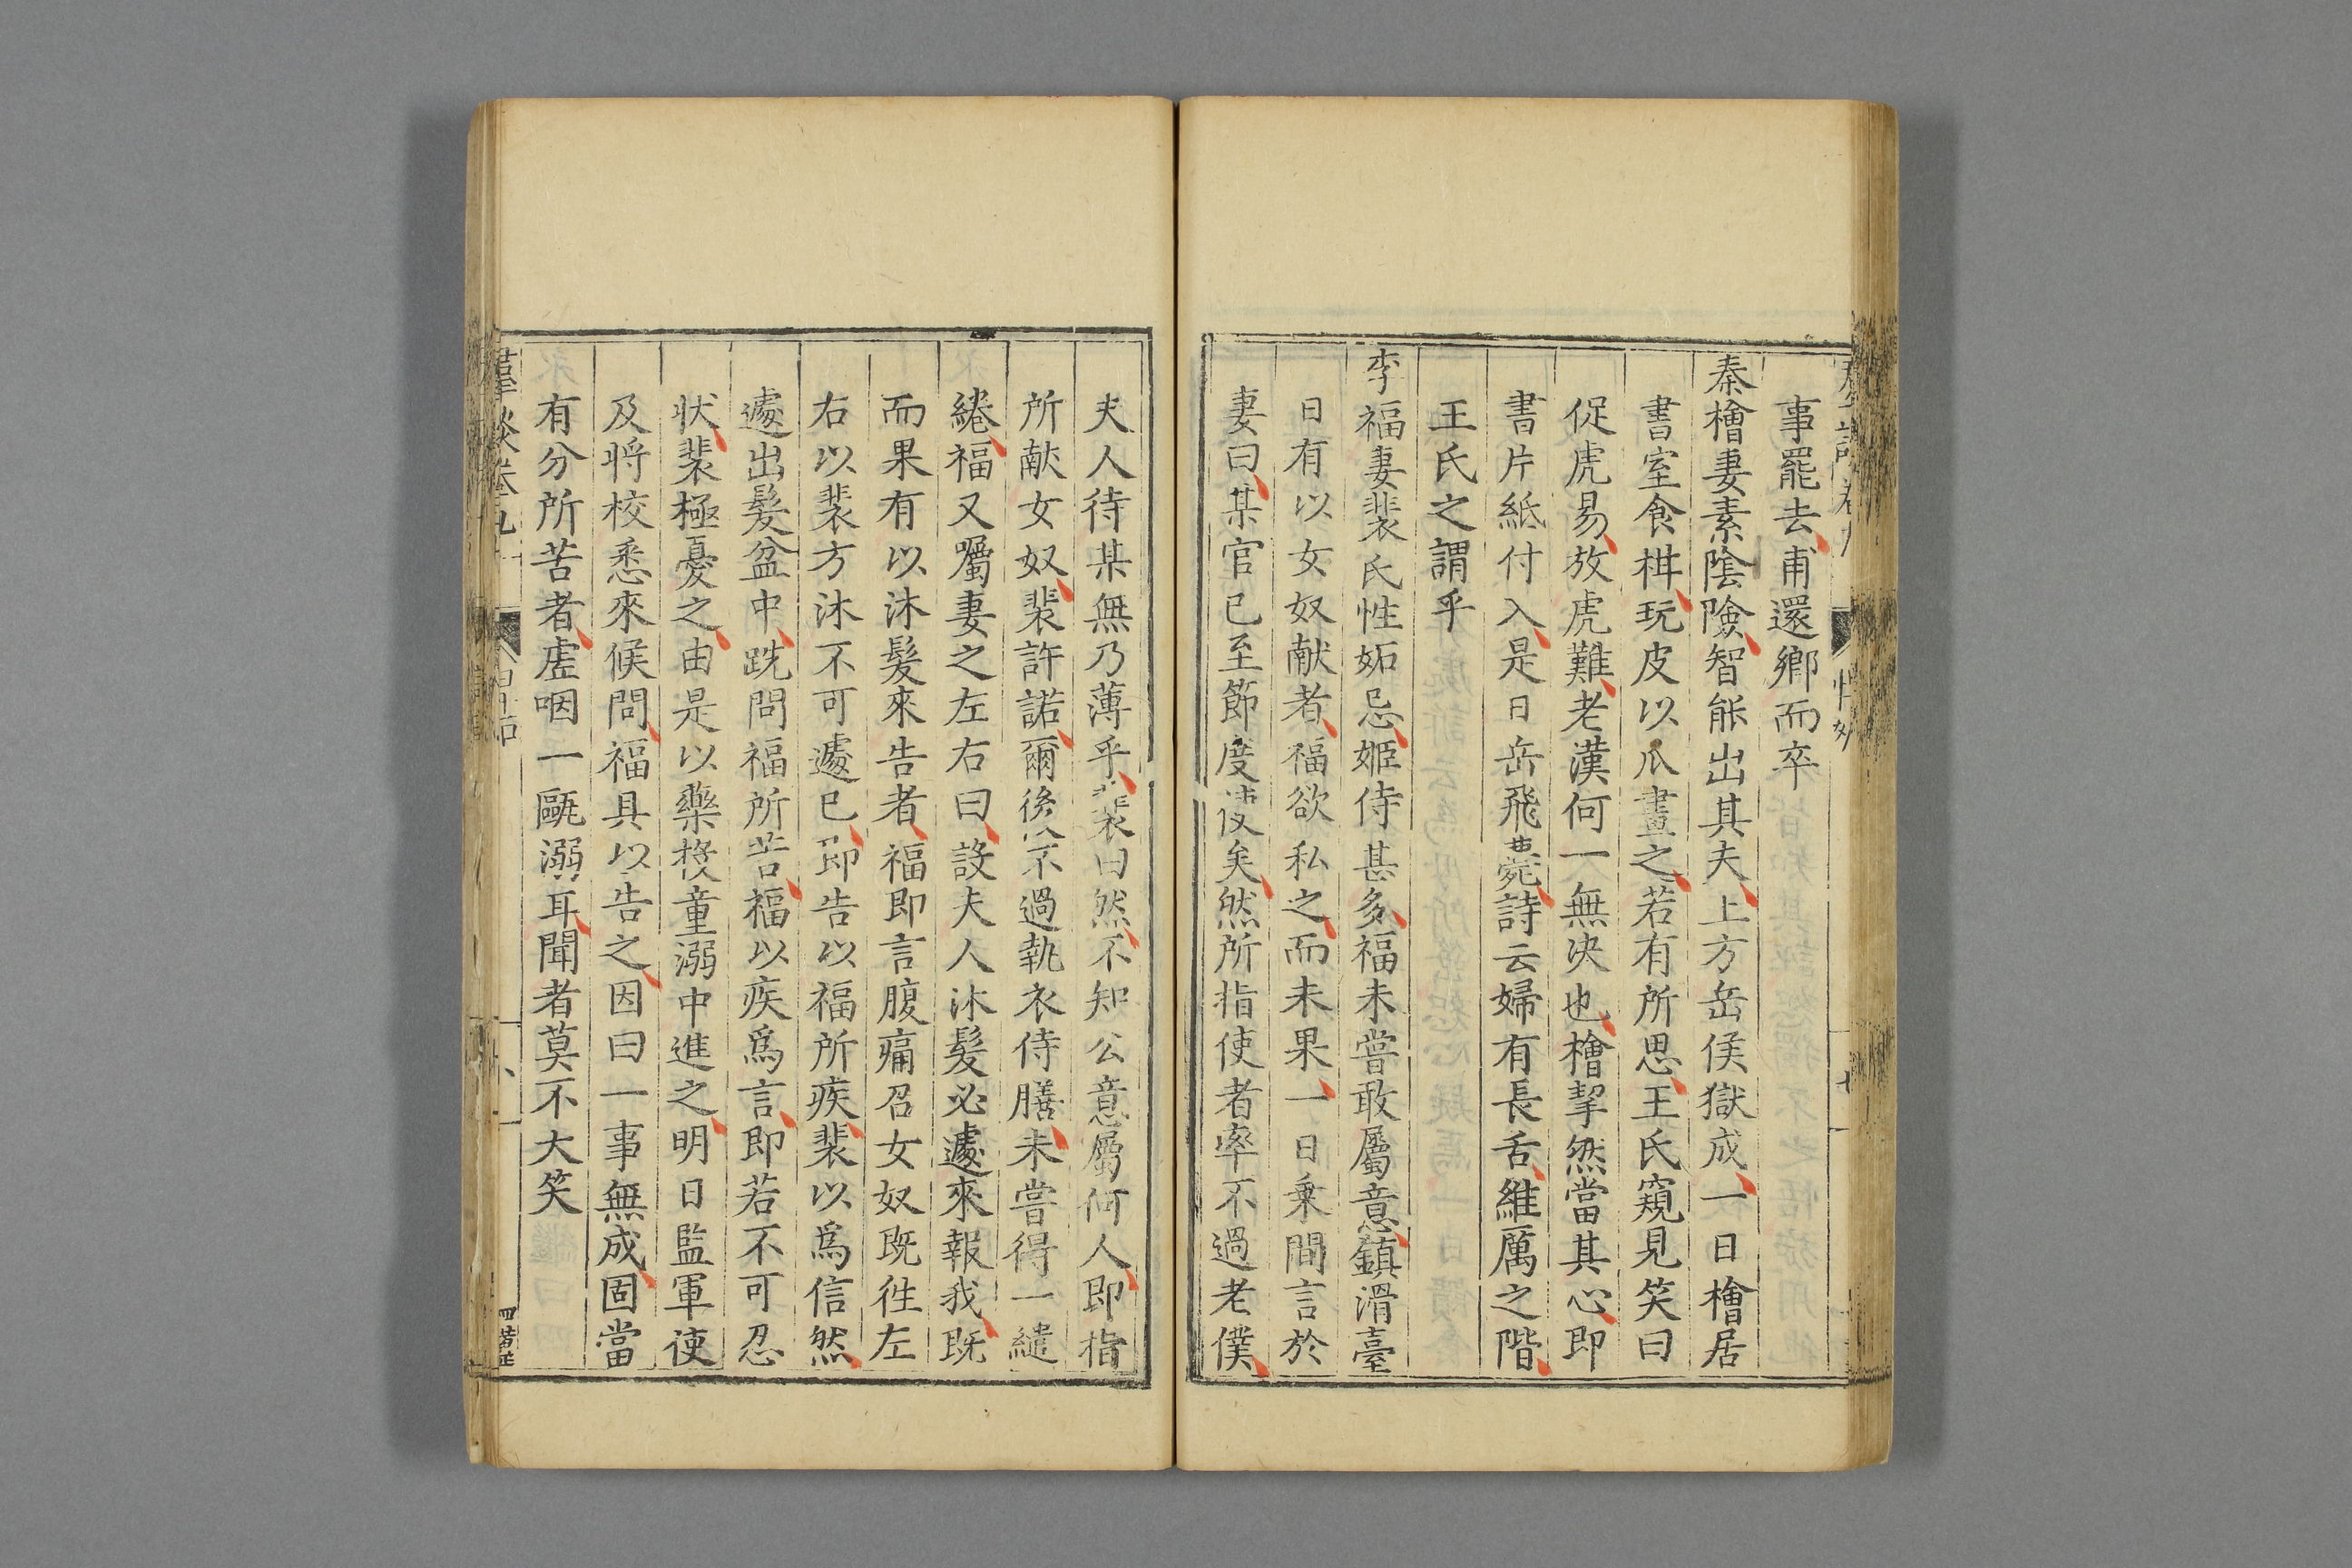 事罷去甫還鄉而卒
秦檜妻素陰險智能出其夫上方岳侯獄成一日檜居
書室食柑玩皮以爪畫之若有所思王氏窺見笑曰
促虎易放虎難老漢何一無决也檜挈然當其心即
書片紙付入是日岳飛薨詩云婦有長舌維厲之階
王氏之謂乎
李福妻裴氏性妬忌姬侍甚多福未嘗敢屬意鎮滑臺
日有以女奴献者福欲私之而未果一日乗間言於
妻曰某官已至節度使矣然所指使者率不過老僕
夫人待某無乃薄乎裴曰然不知公意屬何人即指
所献女奴裴許諾爾後不過執衣侍膳未嘗得一繾
綣福又囑妻之左右曰設夫人沐髮必遽來報我既
而果有以沐髮來告者福即言腹痛召女奴既徃左
右以裴方沐不可遽已即告以福所疾裴以爲信然
遽出髮盆中跣問福所苦福以疾爲言即若不可忍
状裴極憂之由是以藥投童溺中進之明日監軍使
及将校悉來候問福具以告之因曰一事無成固當
有分所苦者虛咽一甌溺耳聞者莫不大笑
羣談卷九